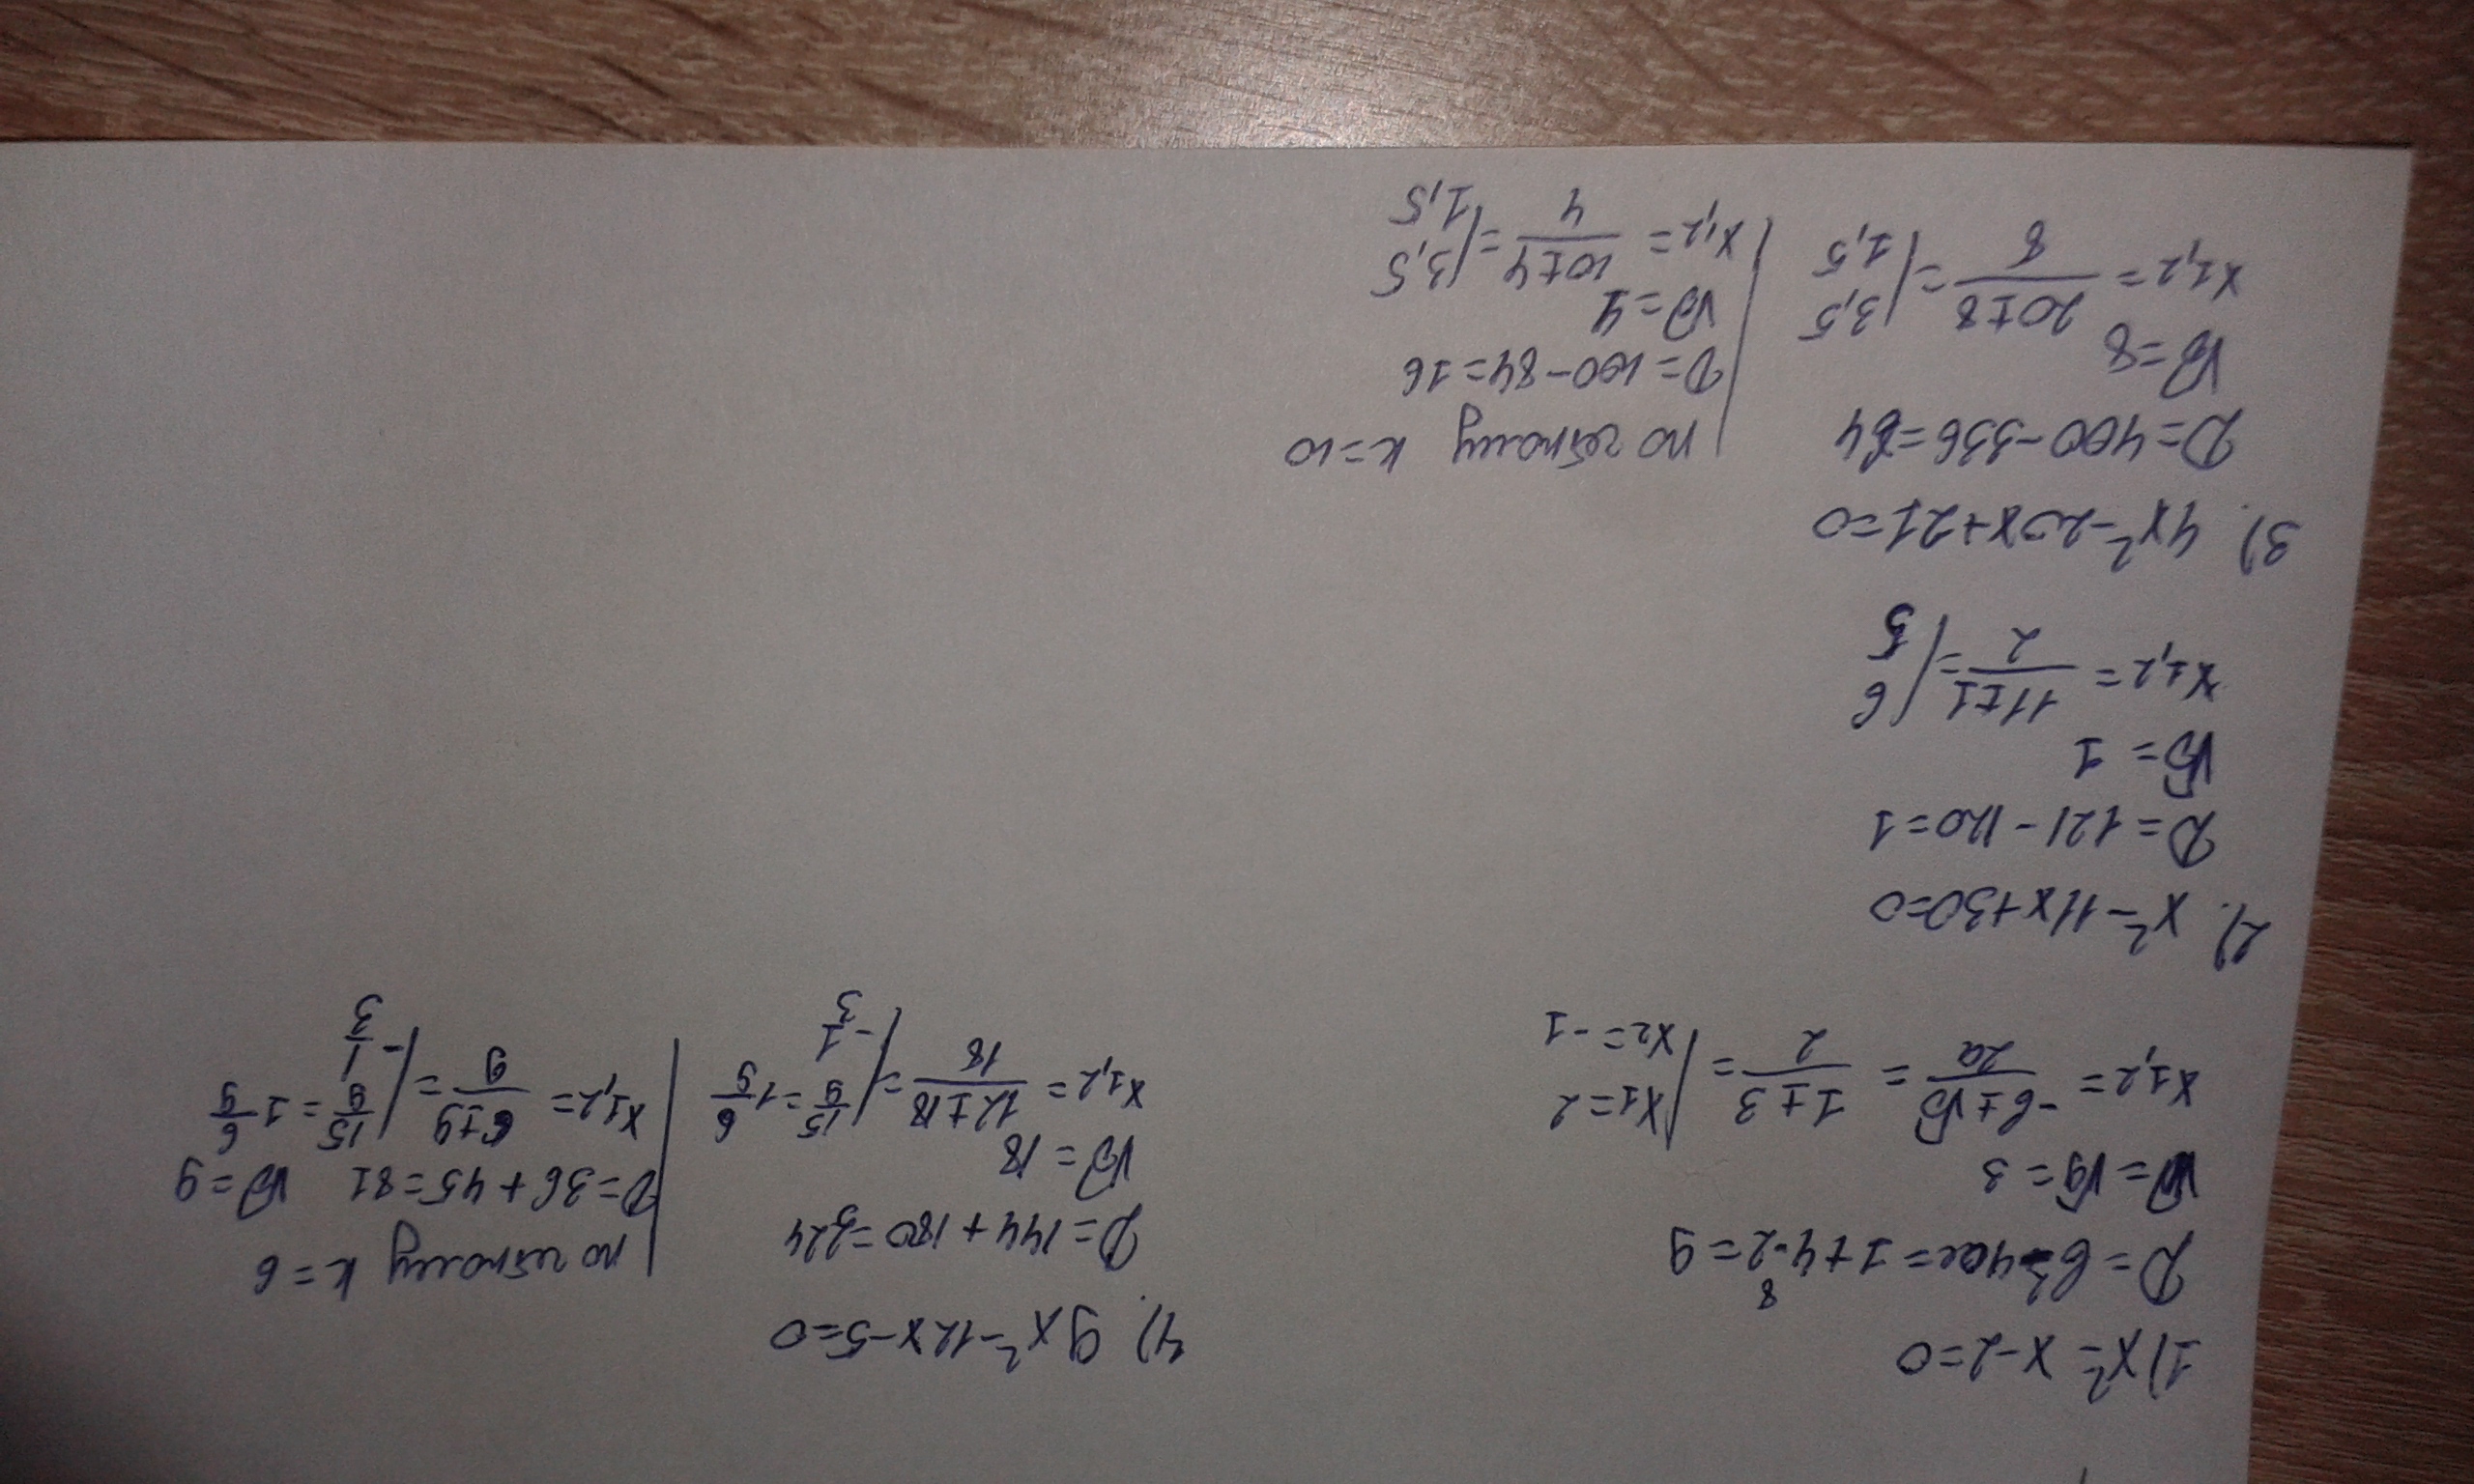 1) x² - x - 2 = 0
D = b² - 4ac = 1 + 4·2 = 9
8
√D = √9 = 3
x1,2 = (-b ± √D)/2a = (1 ± 3)/2 = | x1 = 2
x2 = -1
2). x² - 11x + 30 = 0
D = 121 - 120 = 1
√D = 1
x1,2 = (11 ± 1)/2 = | 6
5
3). 4x² - 20x + 21 = 0
D = 400 - 336 = 64
√D = 8
x1,2 = (20 ± 8)/8 = | 3,5
1,5
по чётному k = 10
D = 100 - 84 = 16
√D = 4
x1,2 = (10 ± 4)/4 = | 3,5
1,5
4). 9x² - 12x - 5 = 0
D = 144 + 180 = 324
√D = 18
x1,2 = (12 ± 18)/18 = | 15/9 = 1 6/9
- 1/3
по чётному k = 6
D = 36 + 45 = 81 √D = 9
x1,2 = (6 ± 9)/9 = | 15/9 = 1 6/9
- 1/3